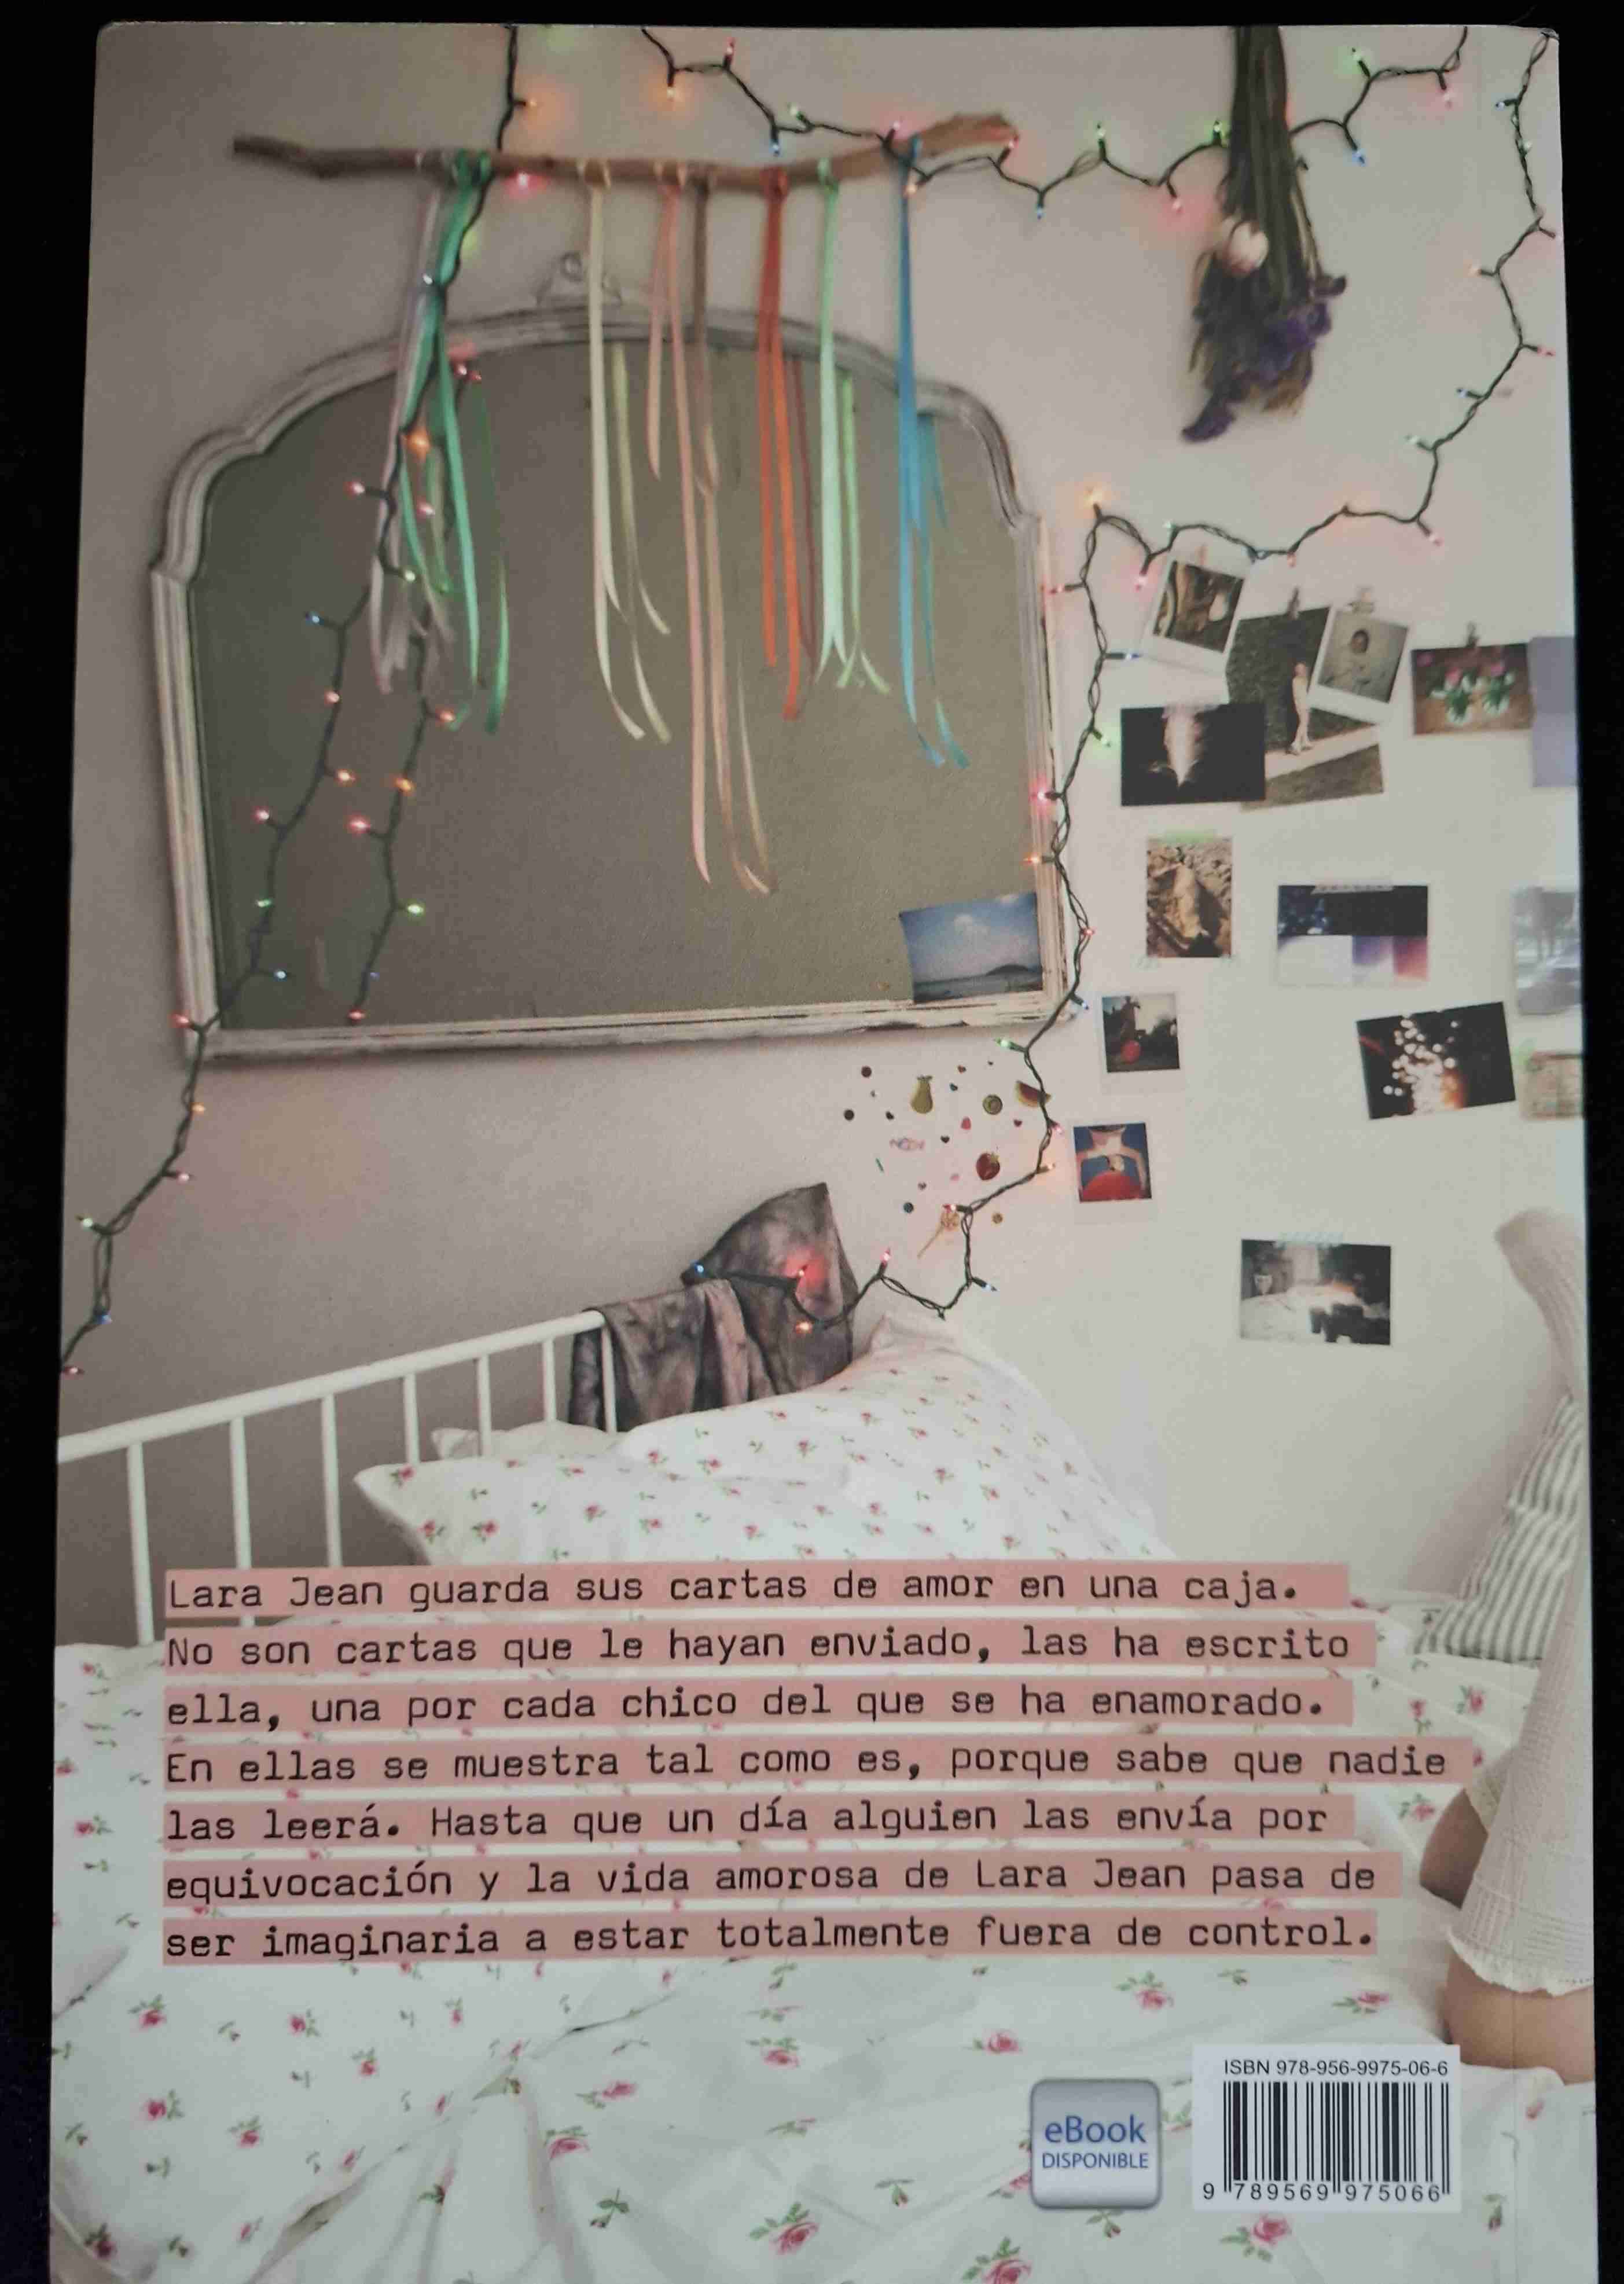 Lara Jean guarda sus cartas de amor en una caja.
No son cartas que le hayan enviado, las ha escrito
ella, una por cada chico del que se ha enamorado.
En ellas se muestra tal como es, porque sabe que nadie
las leerá. Hasta que un día alguien las envía por
equivocación y la vida amorosa de Lara Jean pasa de
ser imaginaria a estar totalmente fuera de control.
ISBN 978-956-9975-06-6
eBook
DISPONIBLE
9 789569 975066